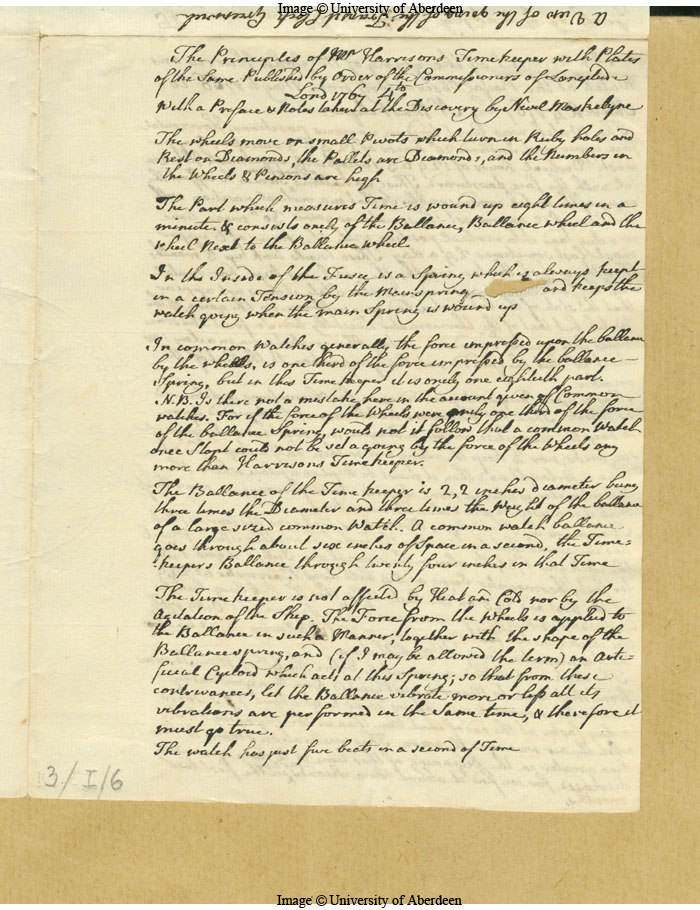 Image © University of Aberdeen
A View of the
The Principles of Mr Harrisons Timekeeper with Plates
of the Same Published by Order of the Commissioners of Longitude
Lond 1767 4to
with a Preface & Notes taken at the Discovery by Nevil Maskelyne
The wheels move on small Pivots which turn in Ruby holes and
Rest on Diamonds, the Pallets are Diamonds, and the Numbers in
the Wheels & Pinions are high
The Part which measures Time is wound up eight times in a
minute & consists onely of the Ballance, Ballance wheel and the
wheel Next to the Ballance wheel
In the Inside of the Fusee is a Spring which is always kept
in a certain Tension by the Mainspring and keeps the
watch going when the main Spring is wound up
In common Watches generally the force impressed upon the ballance
by the wheells, is one third of the force impressed by the ballance
Spring, but in this Time keeper it is onely one eightieth part.
N.B. Is there not a mistake here in the account given of Common
watches. For if the force of the Wheels were onely one third of the force
of the ballance Spring, would not it follow that a common Watch
once Stopt could not be set a going by the force of the Wheels any
more than Harrisons Timekeeper.
The Ballance of the Time keeper is 2,2 inches diameter being
three times the Diameter and three times the Weight of the ballance
of a large sized common Watch. A common watch ballance
goes through about six inches of Space in a second, the Time=
=keepers Ballance through twenty four inches in that Time
The Time keeper is not affected by Heat an Cold nor by the
Agitation of the Ship. The Force from the Wheels is applied to
the Ballance in such a Manner, together with the shape of the
Ballance spring, and (if I may be allowed the term) an Arti=
ficial Cycloid which acts at this Spring; so that from these
contrivances, let the Ballance vibrate more or less all its
vibrations are performed in the Same time, & therefore it
must go true.
The watch has just five beats in a second of Time
3/I/6
Image © University of Aberdeen